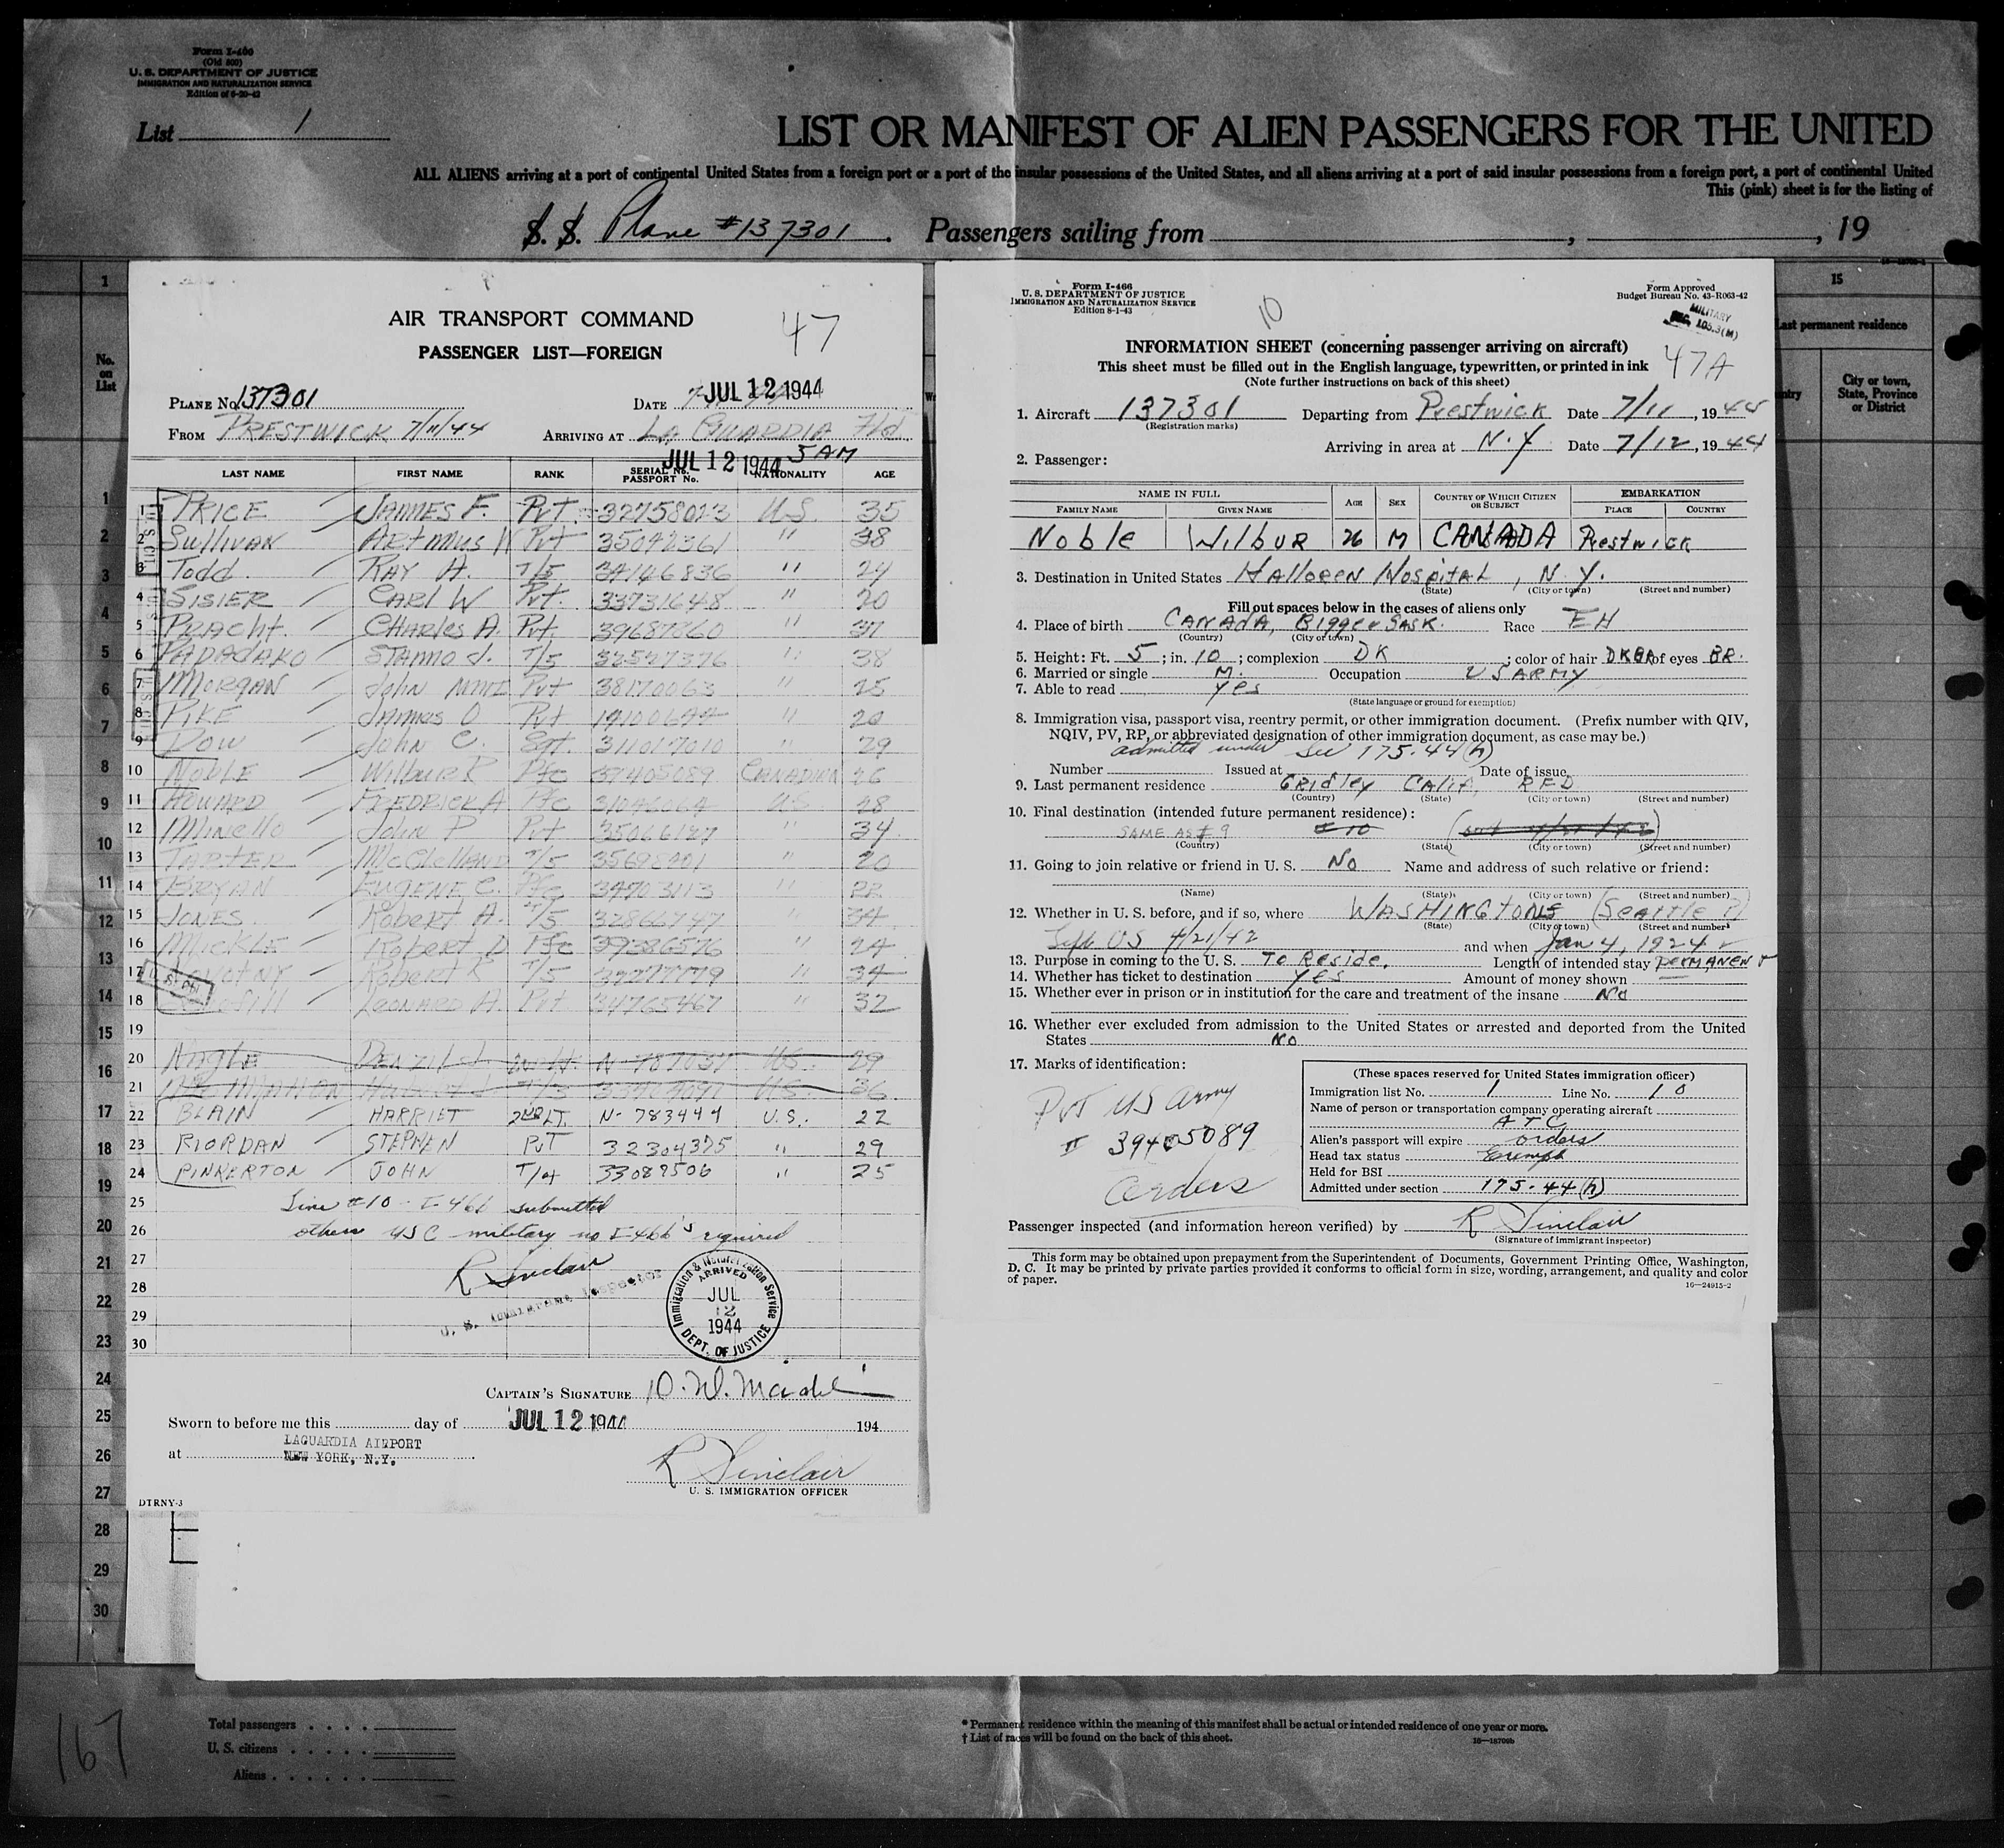 Form I-400
(Old 500)
U. S. DEPARTMENT OF JUSTICE
IMMIGRATION AND NATURALIZATION SERVICE
Edition of 6-20-42
List 1
LIST OR MANIFEST OF ALIEN PASSENGERS FOR THE UNITED
ALL ALIENS arriving at a port of continental United States from a foreign port or a port of the insular possessions of the United States, and all aliens arriving at a port of said insular possessions from a foreign port, a port of continental United
This (pink) sheet is for the listing of
S. S. Plane #137301. Passengers sailing from , , 19
1
No. on List
AIR TRANSPORT COMMAND 47
PASSENGER LIST—FOREIGN
PLANE No. 137301 DATE JUL 12 1944
FROM PRESTWICK 7/11/44 ARRIVING AT LA GUARDIA Fld
JUL 12 1944 5 AM
LAST NAME FIRST NAME RANK SERIAL No. PASSPORT No. NATIONALITY AGE
1 PRICE JAMES F. Pvt. 32758023 U.S. 35
2 Sullivan ARTMUS W Pvt 35042361 " 38
3 Todd RAY H. T/5 34146836 " 24
4 SISIER CARL W Pvt. 33731648 " 20
5 PRACHT. CHARLES A. Pvt. 39687860 " 37
6 PAPADAKO STAMO J. T/5 32527376 " 38
7 MORGAN John Pvt 38170063 " 25
8 PIKE JAMES O Pvt " 20
9 DOW John C. Sgt. 311017010 " 29
10 NOBLE Wilbur R Pfc 39405089 CANADIAN 26
11 HOWARD FREDRICK A Pfc 31046064 US 28
12 Minello John P Pvt 35066127 " 34
13 TARTER McClelland T/5 " 20
14 BRYAN EUGENE C. Pfc 34703113 " 22
15 JONES Robert A. T/5 32866747 " 34
16 MICKLE Robert D Pfc 39386576 " 24
17 Robert T/5 " 34
18 LEONARD A. Pvt 34765467 " 32
19
20 ANGLE DENZIL J. N-787037 US 29
21 McMAHON U.S. 36
22 BLAIN HARRIET 2ND LT. N-783444 U.S. 22
23 RIORDAN STEPHEN PVT 32304375 " 29
24 PINKERTON JOHN T/4 33089506 " 25
25 Line #10 - I-466 submitted
26 others USC military no I-466's required
27 R Sinclair
28 U. S. Immigrant Inspector
29
30
Immigration & Naturalization Service
ARRIVED
JUL
12
1944
DEPT. OF JUSTICE
CAPTAIN'S SIGNATURE
Sworn to before me this day of JUL 12 1944 194
at LAGUARDIA AIRPORT
NEW YORK, N.Y.
R Sinclair
U. S. IMMIGRATION OFFICER
DTRNY-3
Form I-466
U. S. DEPARTMENT OF JUSTICE
IMMIGRATION AND NATURALIZATION SERVICE
Edition 8-1-43
10
Form Approved
Budget Bureau No. 43-R063-42
MILITARY
105.3(M)
47A
INFORMATION SHEET (concerning passenger arriving on aircraft)
This sheet must be filled out in the English language, typewritten, or printed in ink
(Note further instructions on back of this sheet)
1. Aircraft 137301 Departing from Prestwick Date 7/11, 1944
(Registration marks)
Arriving in area at N.Y. Date 7/12, 1944
2. Passenger:
NAME IN FULL AGE SEX COUNTRY OF WHICH CITIZEN OR SUBJECT EMBARKATION
FAMILY NAME GIVEN NAME PLACE COUNTRY
Noble Wilbur 26 M CANADA Prestwick
3. Destination in United States Halloren Hospital, N. Y.
(State) (City or town) (Street and number)
Fill out spaces below in the cases of aliens only
4. Place of birth CANADA, Bigger Sask. Race EH
(Country) (City or town)
5. Height: Ft. 5; in. 10; complexion DK; color of hair DKBR of eyes BR.
6. Married or single M. Occupation US ARMY
7. Able to read yes
(State language or ground for exemption)
8. Immigration visa, passport visa, reentry permit, or other immigration document. (Prefix number with QIV,
NQIV, PV, RP, or abbreviated designation of other immigration document, as case may be.)
admitted under Sec 175.44(h)
Number Issued at Date of issue
9. Last permanent residence GRIDLEY CALIF. RFD
(Country) (State) (City or town) (Street and number)
10. Final destination (intended future permanent residence):
SAME AS #9 #10
(Country) (State) (City or town) (Street and number)
11. Going to join relative or friend in U. S. No Name and address of such relative or friend:
(Name) (State) (City or town) (Street and number)
12. Whether in U. S. before, and if so, where WASHINGTON (Seattle ?)
(State) (City or town) (Street and number)
Left US 4/21/42 and when Jan 4, 1924
13. Purpose in coming to the U. S. To Reside. Length of intended stay PERMANENT
14. Whether has ticket to destination yes Amount of money shown —
15. Whether ever in prison or in institution for the care and treatment of the insane No
16. Whether ever excluded from admission to the United States or arrested and deported from the United
States No
17. Marks of identification:
Pvt US Army
# 39405089
Orders
(These spaces reserved for United States immigration officer)
Immigration list No. 1 Line No. 10
Name of person or transportation company operating aircraft
ATC
Alien's passport will expire orders
Head tax status Exempt
Held for BSI
Admitted under section 175.44(h)
Passenger inspected (and information hereon verified) by R Sinclair
(Signature of immigrant inspector)
This form may be obtained upon prepayment from the Superintendent of Documents, Government Printing Office, Washington,
D. C. It may be printed by private parties provided it conforms to official form in size, wording, arrangement, and quality and color
of paper.
16—24915-2
15
Last permanent residence
City or town, State, Province or District
1
2
3
4
5
6
7
8
9
10
11
12
13
14
15
16
17
18
19
20
21
22
23
24
25
26
27
28
29
30
167
Total passengers
U. S. citizens
Aliens
* Permanent residence within the meaning of this manifest shall be actual or intended residence of one year or more.
† List of races will be found on the back of this sheet.